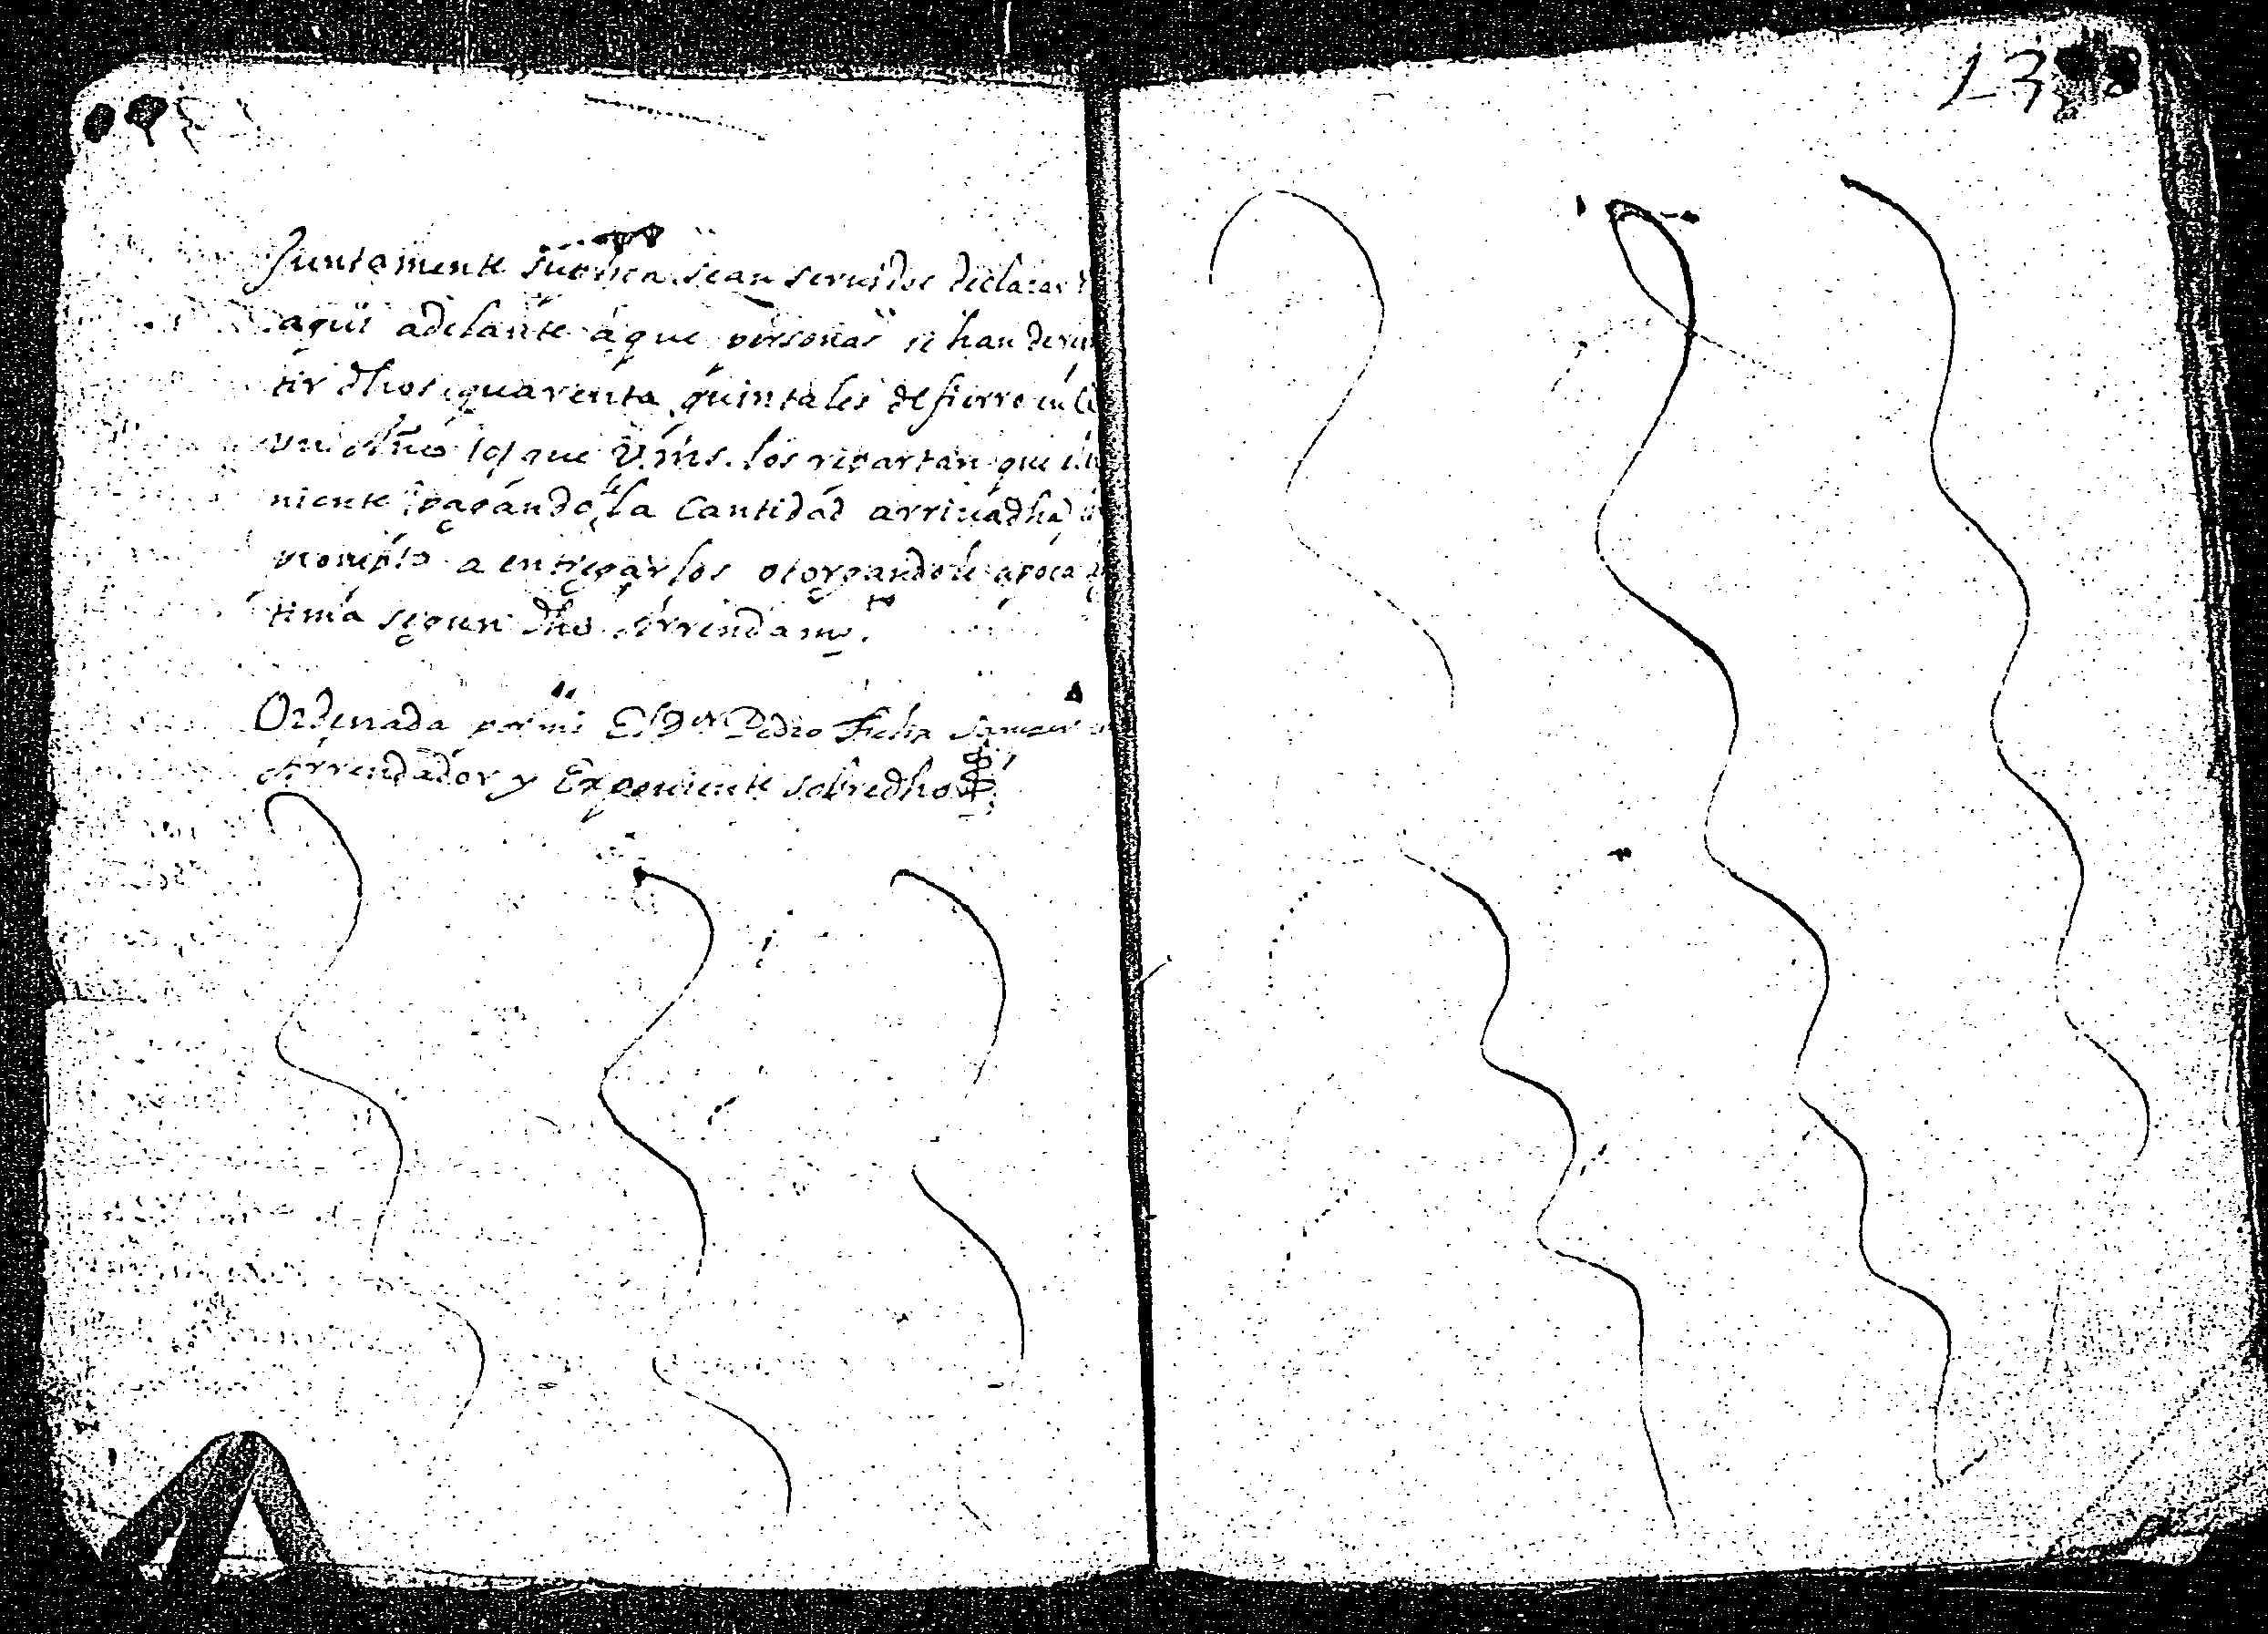 Juntamente suplica sean seruidos declarar
aqui adelante á que personas se han de
tir dhos quarenta quintales de fierro en
que Vms. los repartan que
niente pagandole la Cantidad arriuadha
prompto a entregarlos otorgandole apoca
tima segun dho Arrendamto.
Ordenada por mi El Dor Pedro
Arrendador y Exponiente sobredho
13